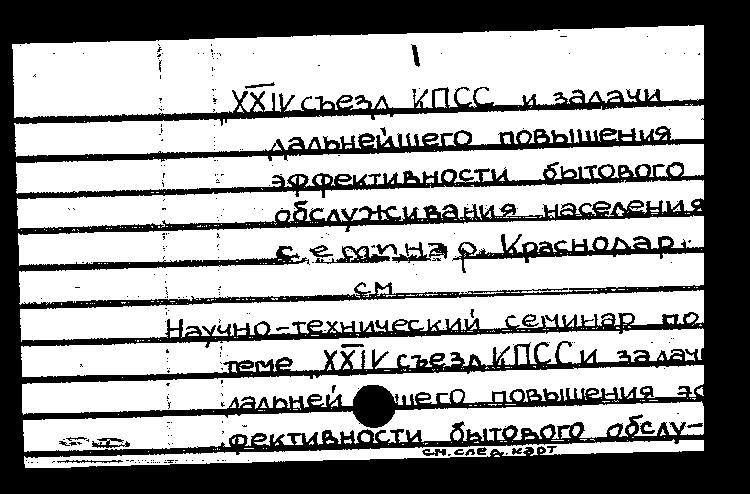 XXIV съезд КПСС и задачи
дальнейшего повышения
эффективности бытового
обслуживания населения
семинар. Краснодар.
см
Научно-технический семинар по
теме "XXIV съезд КПСС и задачи
дальней шего повышения эф
фективности бытового обслу-
см. след. карт